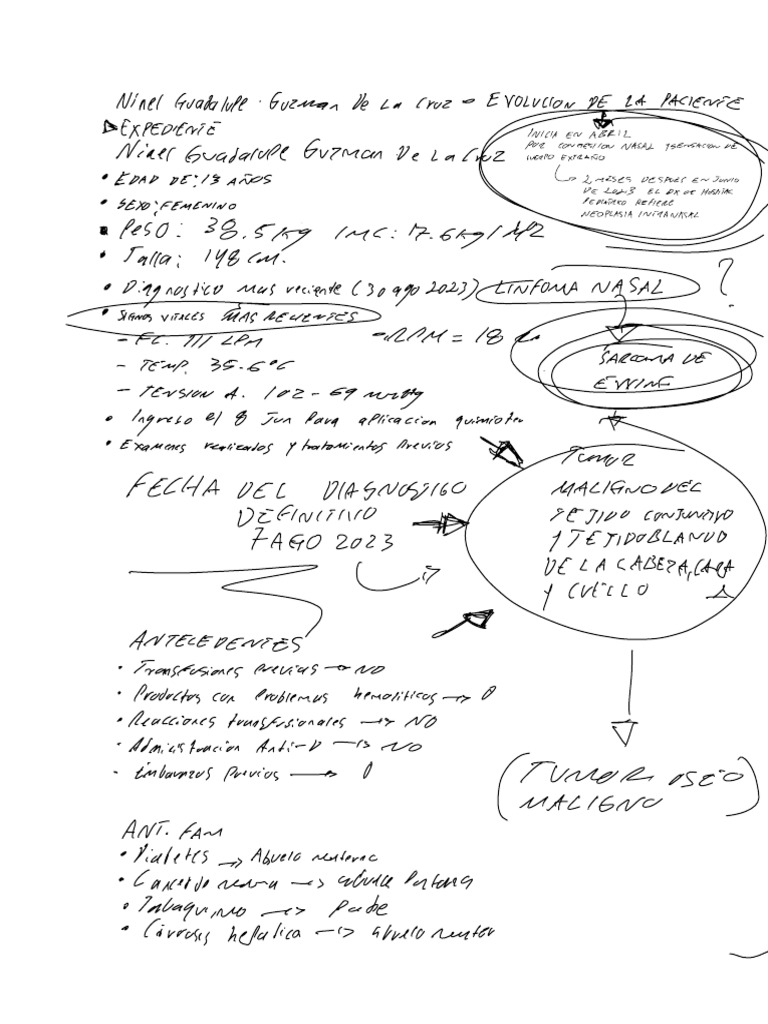 Ninel Guadalupe Guzman De La Cruz - EVOLUCION DE LA PACIENTE
EXPEDIENTE
Ninel Guadalupe Guzman De La Cruz
• EDAD DE: 13 AÑOS
• SEXO: FEMENINO
• PESO: 38.5 kg IMC: 17.6 kg/M2
• Talla: 148 cm.
• Diagnostico mas reciente (30 ago 2023) LINFOMA NASAL
• SIGNOS VITALES MAS RECIENTES
- FC. 111 LPM - RPM = 18
- TEMP. 35.6°C
- TENSION A. 102-69 mmHg
• Ingreso el 8 Jun para aplicacion quimioter
• Examenes realizados y tratamientos previos
INICIA EN ABRIL
POR CONGESTION NASAL Y SENSACION DE
CUERPO EXTRAÑO
2 MESES DESPUES EN JUNIO
DE 2023 EL DX DE HOSPITAL
PEDIATRICO REFIERE
NEOPLASIA INTRANASAL
?
SARCOMA DE
EWING
FECHA DEL DIAGNOSTICO
DEFINITIVO
7 AGO 2023
TUMOR
MALIGNO DEL
TEJIDO CONJUNTIVO
Y TEJIDO BLANDO
DE LA CABEZA, CARA
Y CUELLO
(TUMOR OSEO
MALIGNO)
ANTECEDENTES
• Transfusiones previas → NO
• Productos con problemas hemoliticos → 0
• Reacciones transfusionales → NO
• Administracion Anti-D → NO
- Embarazos previos → 0
ANT. FAM
• Diabetes → Abuela materna
• Cancer de → abuela Paterna
• Tabaquismo → Padre
• Cirrosis hepatica → abuelo mater